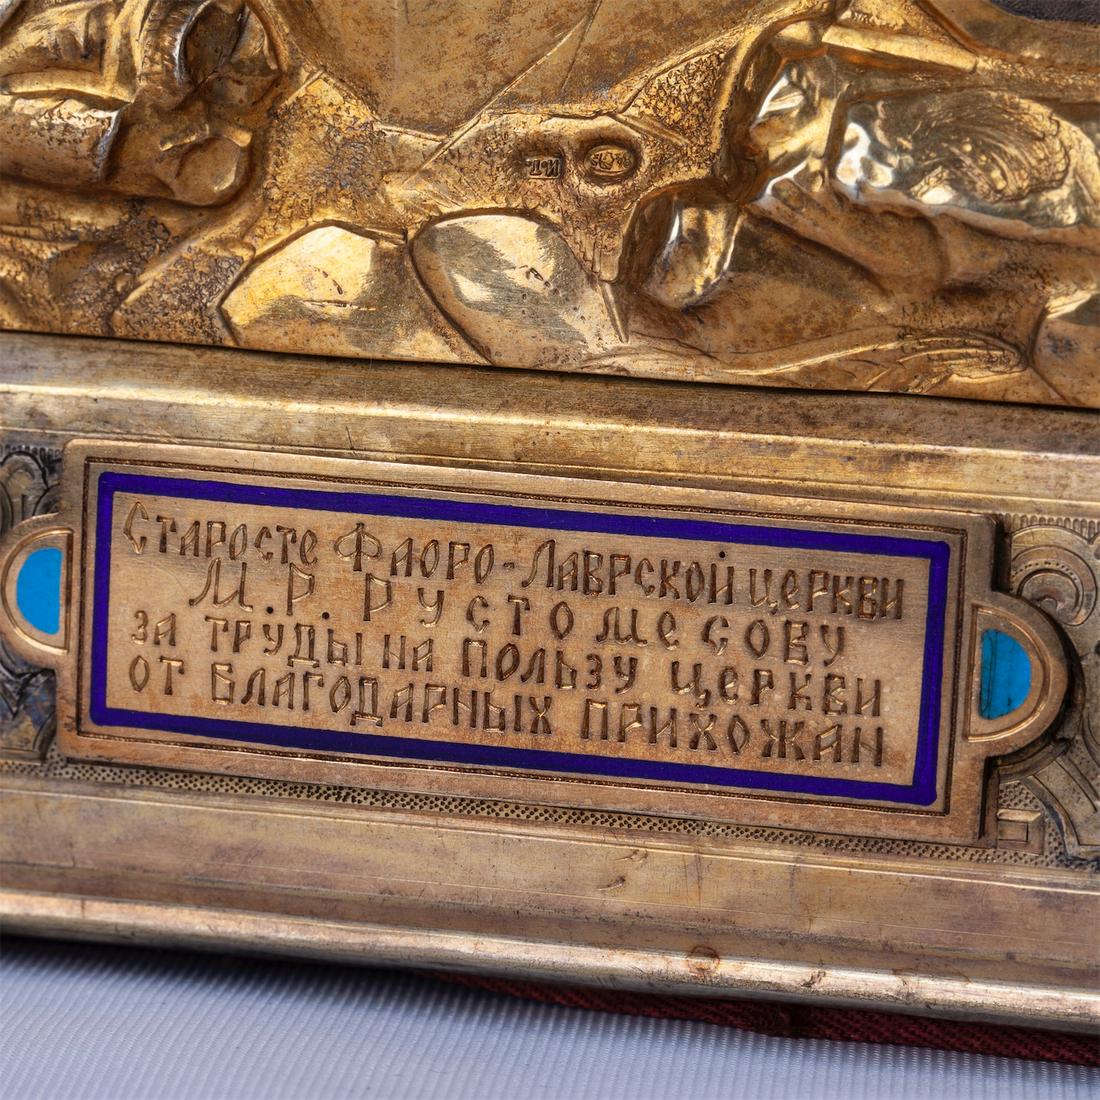 И.Т.
Старосте Фаоро-Лаврской церкви
М. Р. Рустомесову
за труды на пользу церкви
от благодарных прихожан